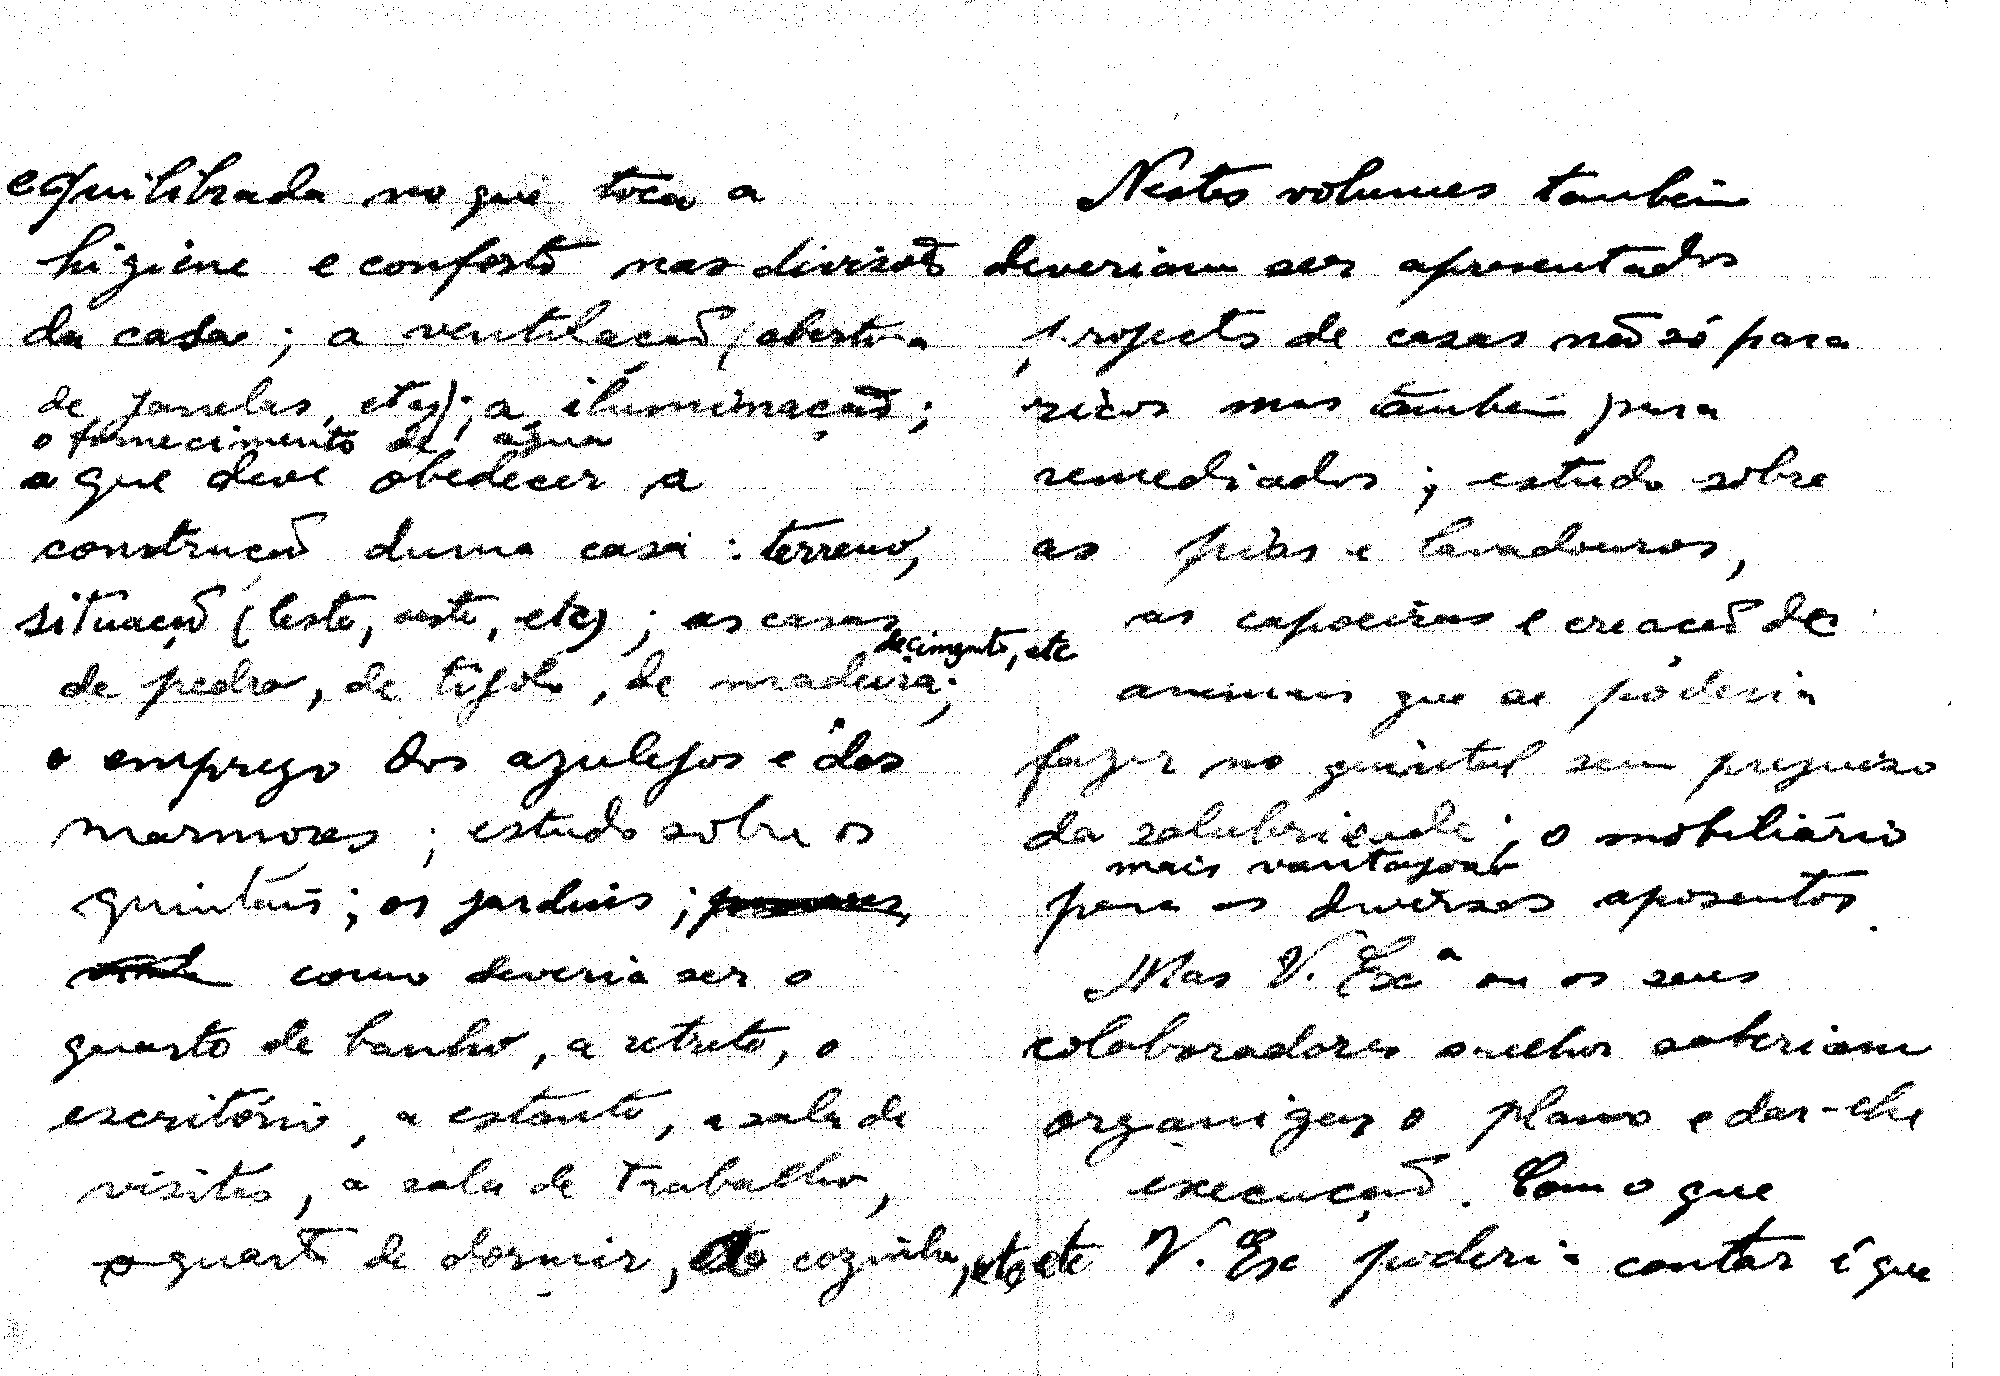 equilibrada no que toca a
higiene e conforto nas divisões
da casa ; a ventilação (abertura
de janelas, etc); a iluminação ;
o fornecimento de água
a que deve obedecer a
construção duma casa : terreno,
situação (leste, oeste, etc) ; as casas
de cimento, etc
de pedra, de tijolo, de madeira;
o emprego dos azulejos e dos
marmores ; estudo sobre os
quintais ; os jardins ;
como deveria ser o
quarto de banho, a retrete, o
escritório, a estante, a sala de
visitas, a sala de trabalho,
o quarto de dormir, cozinha, etc etc
Nestes volumes também
deveriam ser apresentados
projects de casas não só para
ricos mas também para
remediados ; estudo sobre
as pias e lavadouros,
as capoeiras e creação de
animais que se poderia
fazer no quintal sem prejuiso
da salubridade ; o mobiliário
mais vantajoso
para os diversos aposentos
Mas V. Exª ou os seus
colaboradores melhor saberiam
organizar o plano e dar-lhe
execução. Com o que
V. Ex poderia contar é que